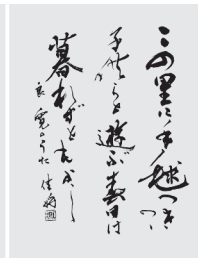 この里に手毬つきつゝ
子供らと遊ぶ春日は
暮れずともよし
良寛のうた 佳